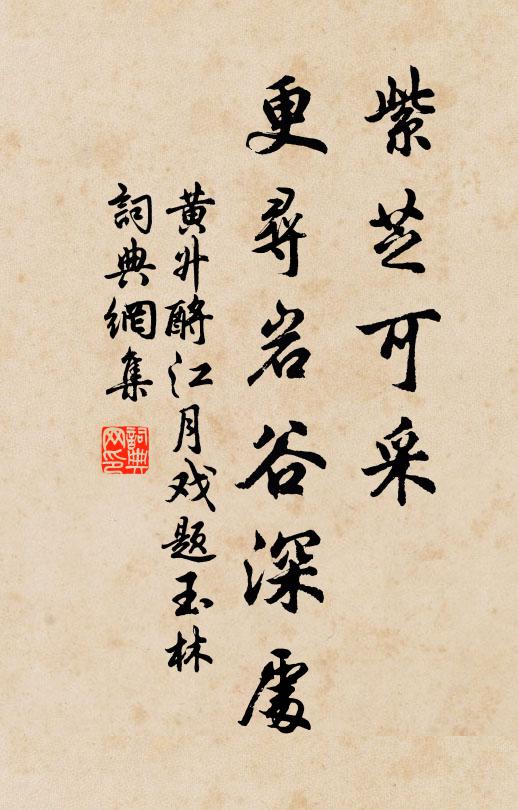 紫芝可采
更尋岩谷深處
黃升酹江月戏题玉林
詞典網集
詞典
网印